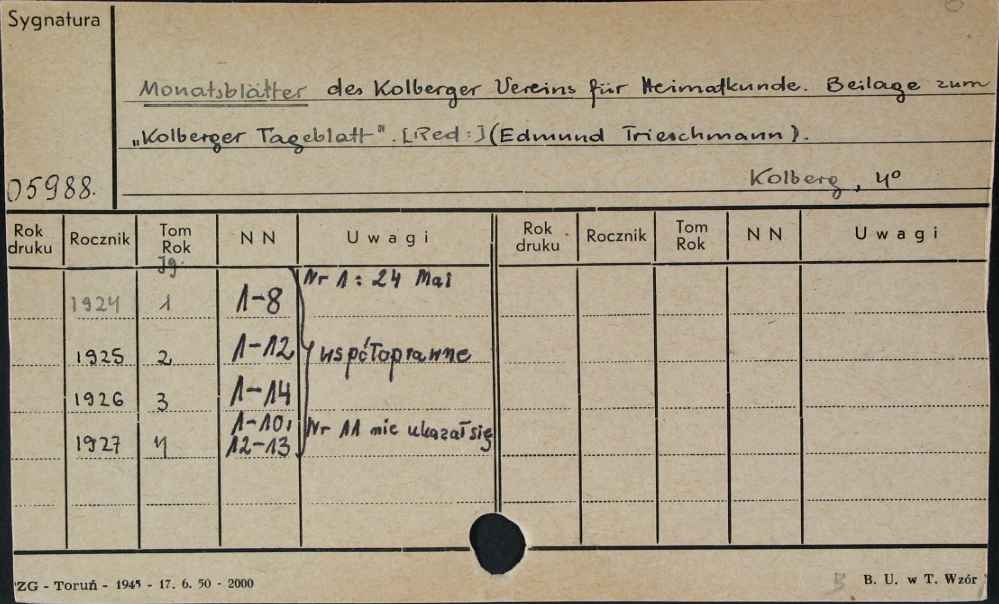 Sygnatura
Monatsblätter des Kolberger Vereins für Heimatkunde. Beilage zum
„Kolberger Tageblatt". [Red:] (Edmund Trieschmann).
05988.
Kolberg, 4°
Rok druku Rocznik Tom Rok NN Uwagi Rok druku Rocznik Tom Rok NN Uwagi
Jg.
Nr 1: 24 Mai
1924 1 1-8
1925 2 1-12 współoprawne
1926 3 1-14
1927 4 1-10, 12-13 Nr 11 nie ukazał się
ZG - Toruń - 1945 - 17. 6. 50 - 2000
B. U. w T. Wzór